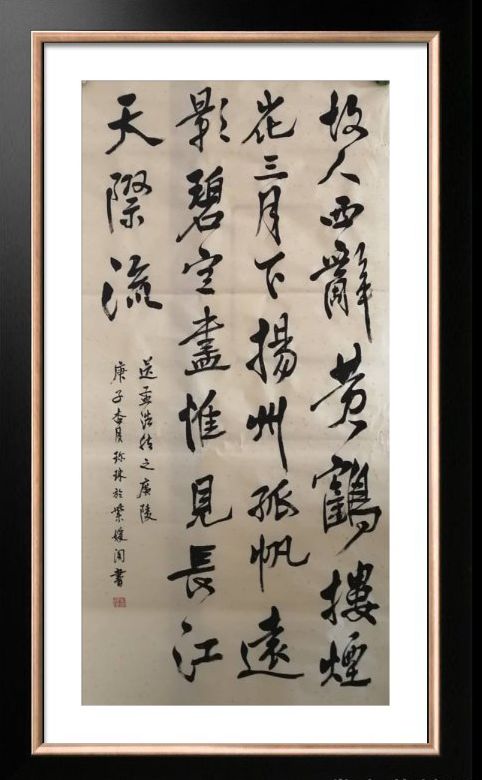 故人西辭黄鶴樓煙
花三月下揚州孤帆遠
影碧空盡惟見長江
天際流
送孟浩然之廣陵
庚子杏月珎琳於紫媛阁書